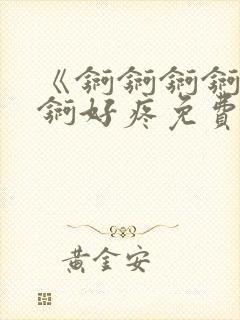 《锕锕锕锕
锕好疼免費
黃金安